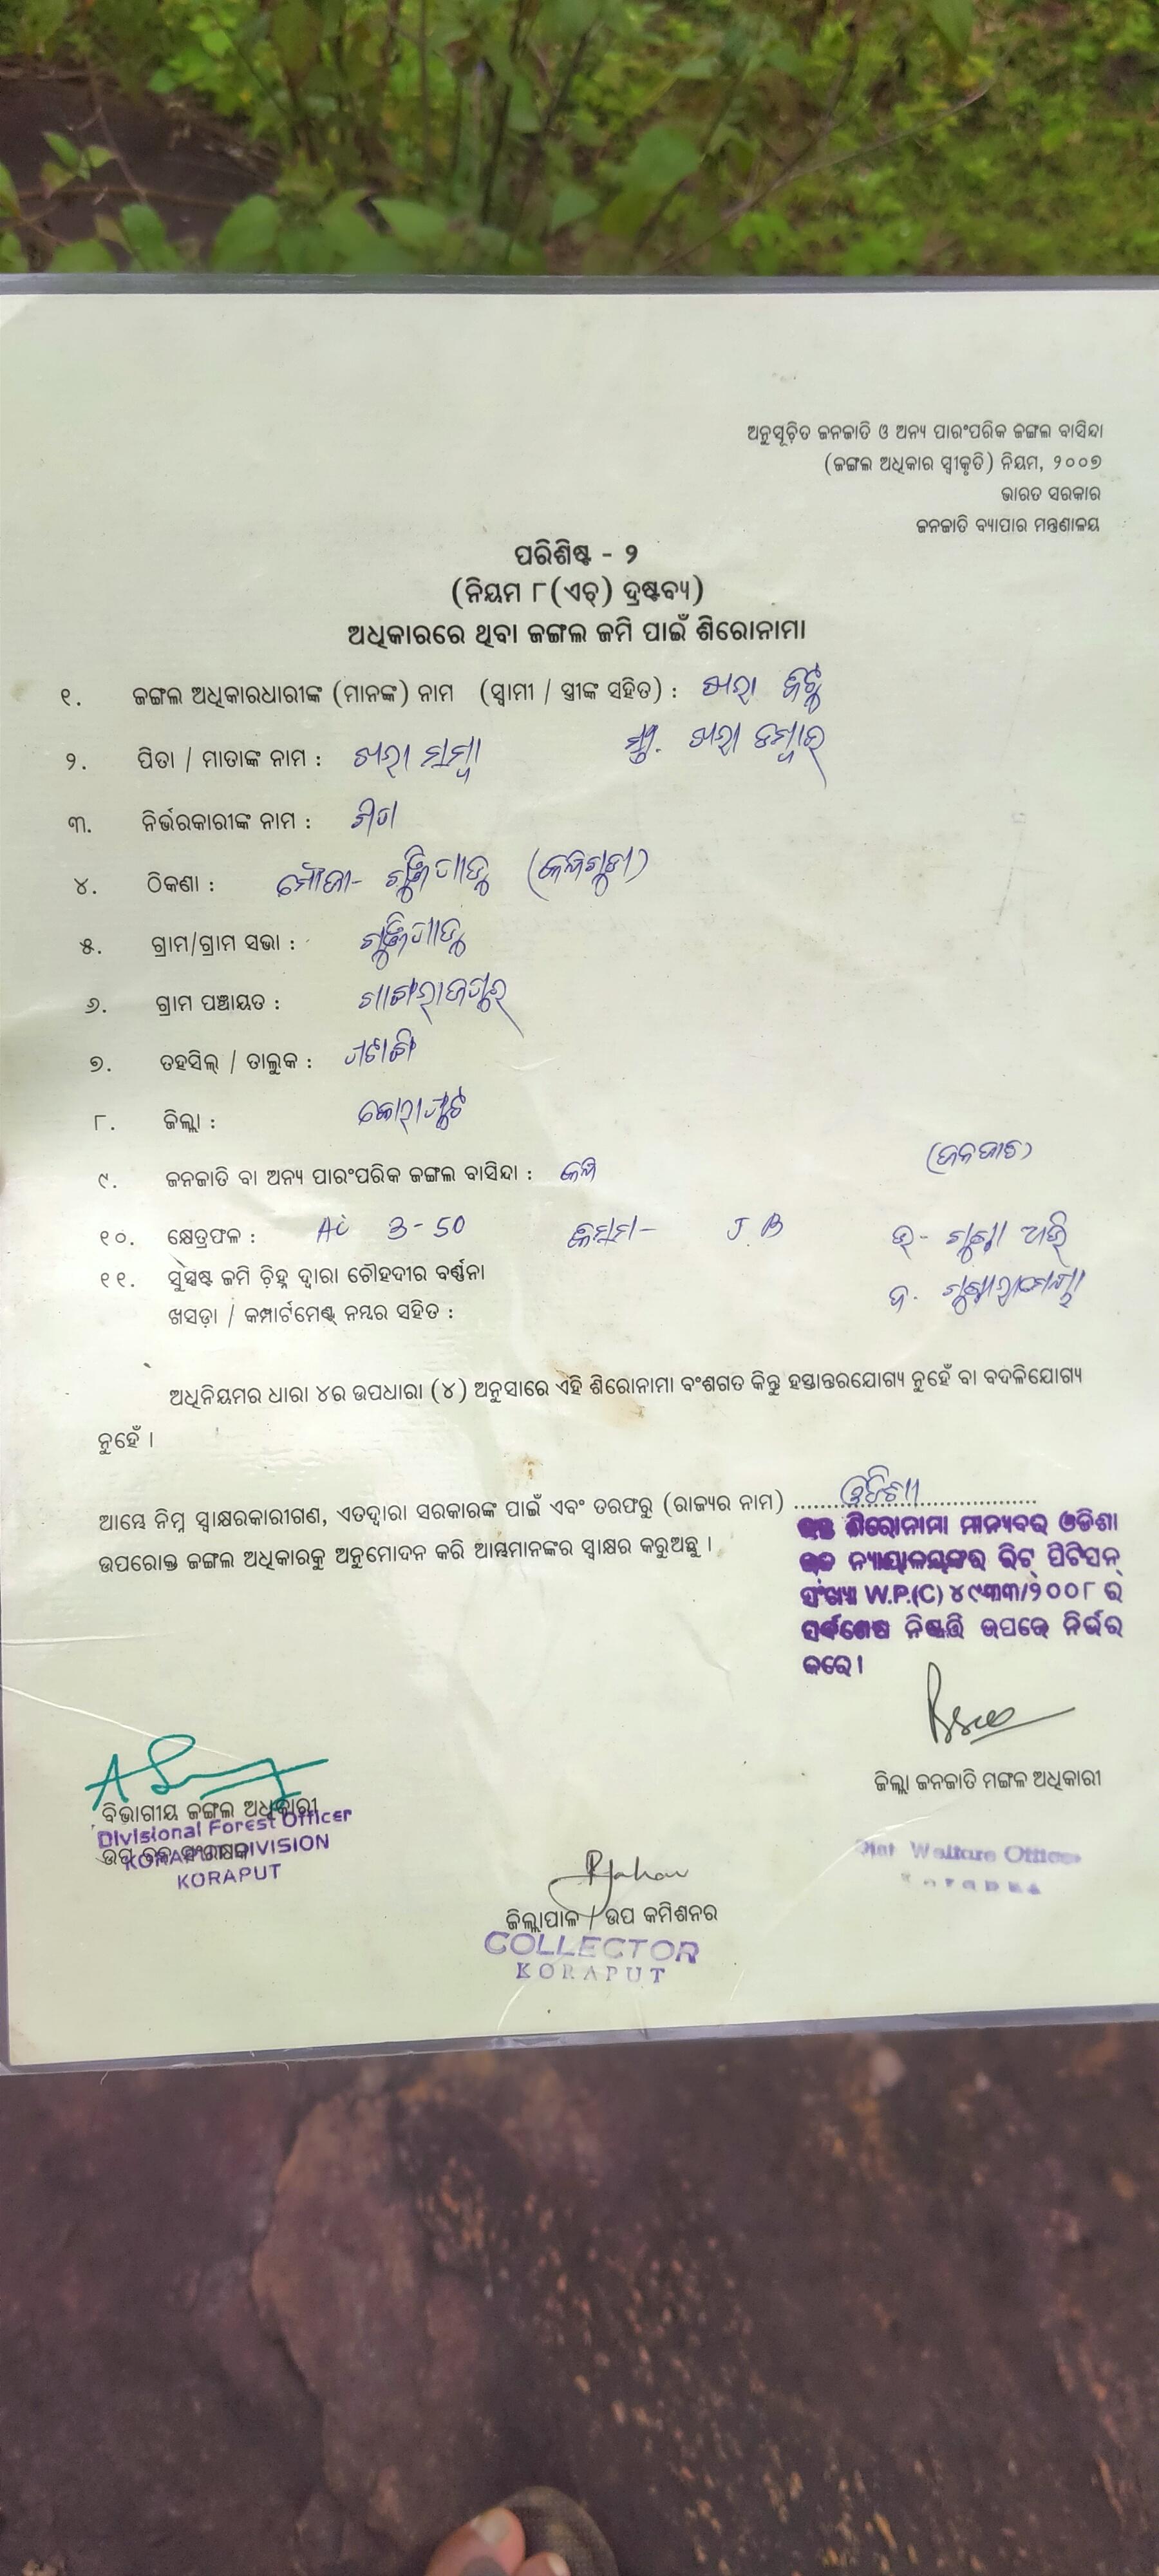 ଅନୁସୂଚିତ ଜନଜାତି ଓ ଅନ୍ୟ ପାରଂପରିକ ଜଙ୍ଗଲ ବାସିନ୍ଦା
(ଜଙ୍ଗଲ ଅଧିକାର ସ୍ୱୀକୃତି) ନିୟମ, ୨୦୦୭
ଭାରତ ସରକାର
ଜନଜାତି ବ୍ୟାପାର ମନ୍ତ୍ରଣାଳୟ
ପରିଶିଷ୍ଟ - ୨
(ନିୟମ ୮(ଏଚ୍) ଦ୍ରଷ୍ଟବ୍ୟ)
ଅଧିକାରରେ ଥିବା ଜଙ୍ଗଲ ଜମି ପାଇଁ ଶିରୋନାମା
୧. ଜଙ୍ଗଲ ଅଧିକାରଧାରୀଙ୍କ (ମାନଙ୍କ) ନାମ (ସ୍ୱାମୀ / ସ୍ତ୍ରୀଙ୍କ ସହିତ) : ଖରା
୨. ପିତା / ମାତାଙ୍କ ନାମ : ଖରା ସମ୍ବା ଖରା ଡମ୍ବାରୁ
୩. ନିର୍ଭରକାରୀଙ୍କ ନାମ :
୪. ଠିକଣା : ମୌଜା-
୫. ଗ୍ରାମ/ଗ୍ରାମ ସଭା :
୬. ଗ୍ରାମ ପଞ୍ଚାୟତ :
୭. ତହସିଲ୍ / ତାଲୁକ : ପଟାଙ୍ଗି
୮. ଜିଲ୍ଲା : କୋରାପୁଟ
୯. ଜନଜାତି ବା ଅନ୍ୟ ପାରଂପରିକ ଜଙ୍ଗଲ ବାସିନ୍ଦା : (ଜନଜାତି)
୧୦. କ୍ଷେତ୍ରଫଳ : Ac 3-50 କିସମ- J.B
୧୧. ସୁସ୍ପଷ୍ଟ ଜମି ଚିହ୍ନ ଦ୍ୱାରା ଚୌହଦୀର ବର୍ଣ୍ଣନା
ଖସଡ଼ା / କମ୍ପାର୍ଟମେଣ୍ଟ୍ ନମ୍ବର ସହିତ :
ଅଧିନିୟମର ଧାରା ୪ର ଉପଧାରା (୪) ଅନୁସାରେ ଏହି ଶିରୋନାମା ବଂଶଗତ କିନ୍ତୁ ହସ୍ତାନ୍ତରଯୋଗ୍ୟ ନୁହେଁ ବା ବଦଳିଯୋଗ୍ୟ
ନୁହେଁ ।
ଆମ୍ଭେ ନିମ୍ନ ସ୍ୱାକ୍ଷରକାରୀଗଣ, ଏତଦ୍ୱାରା ସରକାରଙ୍କ ପାଇଁ ଏବଂ ତରଫରୁ (ରାଜ୍ୟର ନାମ) ଓଡିଶା
ଉପରୋକ୍ତ ଜଙ୍ଗଲ ଅଧିକାରକୁ ଅନୁମୋଦନ କରି ଆମ୍ଭମାନଙ୍କର ସ୍ୱାକ୍ଷର କରୁଅଛୁ ।
ଶିରୋନାମା ମାନ୍ୟବର ଓଡିଶା
ନ୍ୟାୟାଳୟଙ୍କର ରିଟ୍ ପିଟିସନ୍
ସଂଖ୍ୟା W.P.(C) ୪୯୩୩/୨୦୦୮ ର
ସର୍ବଶେଷ ନିଷ୍ପତ୍ତି ଉପରେ ନିର୍ଭର
କରେ।
ଜିଲ୍ଲା ଜନଜାତି ମଙ୍ଗଳ ଅଧିକାରୀ
Dist Welfare Officer
ବିଭାଗୀୟ ଜଙ୍ଗଲ ଅଧିକାରୀ
Divisional Forest Officer
ଉପ ବନ ସଂରକ୍ଷକ
KORAPUT DIVISION
KORAPUT
ଜିଲ୍ଲାପାଳ / ଉପ କମିଶନର
COLLECTOR
KORAPUT